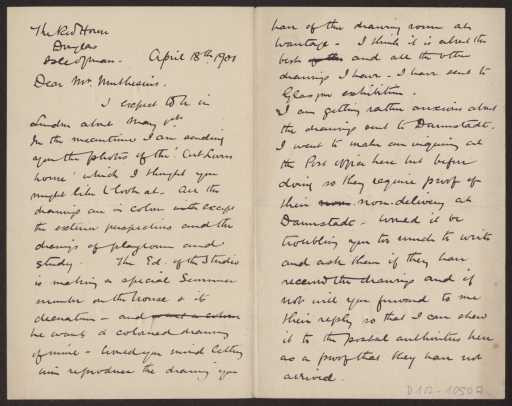 The Red House
Douglas
Isle of man.
April 18th 1901
Dear Mr. Muthesius.
I expect to be in
London about May 9th
In the meantime I am sending
you the photos of the
house' which I thought you
might like to look at. All the
drawings are in colour with except
the exterior perspectives and the
drawings of playroom and
study. The Ed. of the Studio
is making a special Summer
number on the house & its
decoration - and
he wants a coloured drawing
of mine - Would you mind letting
him reproduce the drawing you
have of the drawing room at
Wantage. I think it is about the
best and all the other
drawings I have - I have sent to
Glasgow exhibition.
I am getting rather anxious about
the drawings sent to Darmstadt.
I want to make an enquiry at
the Post office here but before
doing so they require proof of
their non-delivery at
Darmstadt - Would it be
troubling you too much to write
and ask them if they have
received the drawings and if
not will you forward to me
their reply so that I can show
it to the postal authorities here
as a proof that they have not
arrived.
D 102-10507